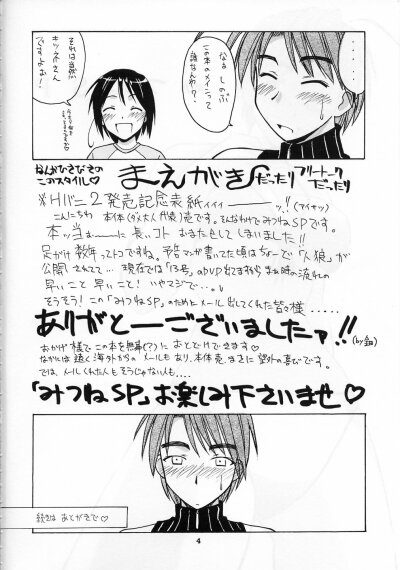 ・・・・
なるしのぶ
この本のメインって
誰なんや?
それは当然
キツネさん
ですよぉ!
・・・・
なんかひさびさの
このスタイル♡
まえがき
だったり
フリートーク
だったり
※Hバニ2発売記念表紙ィィィ――ッ!!(アイキャッ)
こんにちわ 本体(ダメ大人代表)売です。そんなわけで「みつねSP」です。
本ッ当ぉーに長いコト おまたせしてしまいました!!
足かけ数年ってトコですね。予告マンガ書いてた頃はちょーで「人狼」が
公開されてて… 現在では「13号」
早いこと早いこと! いやマジで…。
そうそう!この「みつねSP」のためにメール出してくれた皆々様……
ありがとーございましたァ!!
おかげ様でこの本を無事(?)におとどけできます♡
なかには遠く海外からのメールもあり、本体売、まさに望外の喜びです。
では、メールくれた人もそうじゃない人も……
「みつねSP」お楽しみ下さいませ♡
続きは あとがきで♡
4